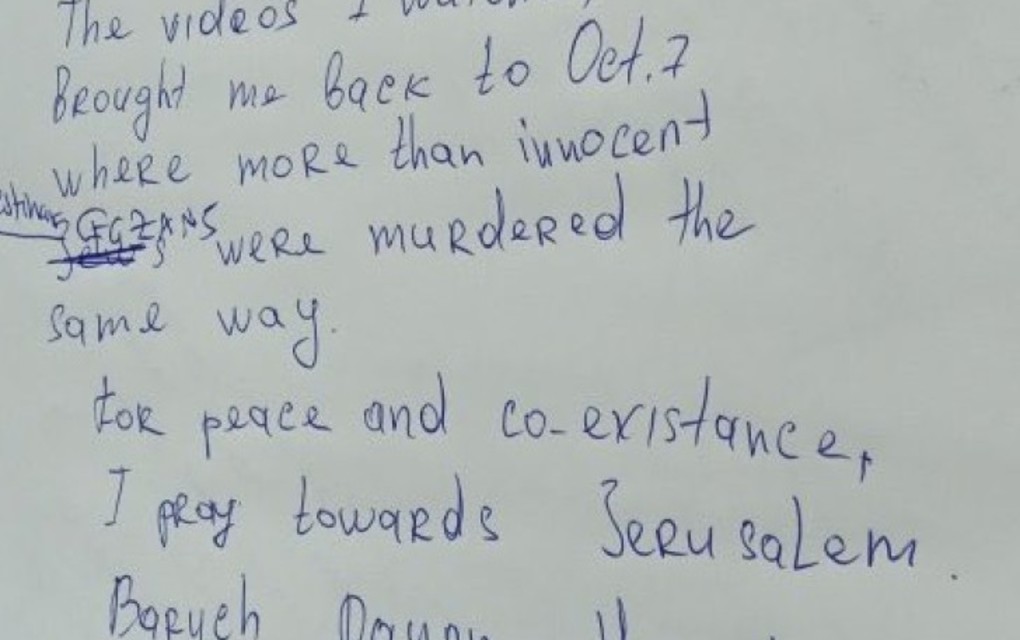 The videos I
Brought me back to Oct. 7
where more than innocent
GAZANS
Jews were murdered the
same way.
for peace and co-existance,
I pray towards Jerusalem.
Baruch Dayan